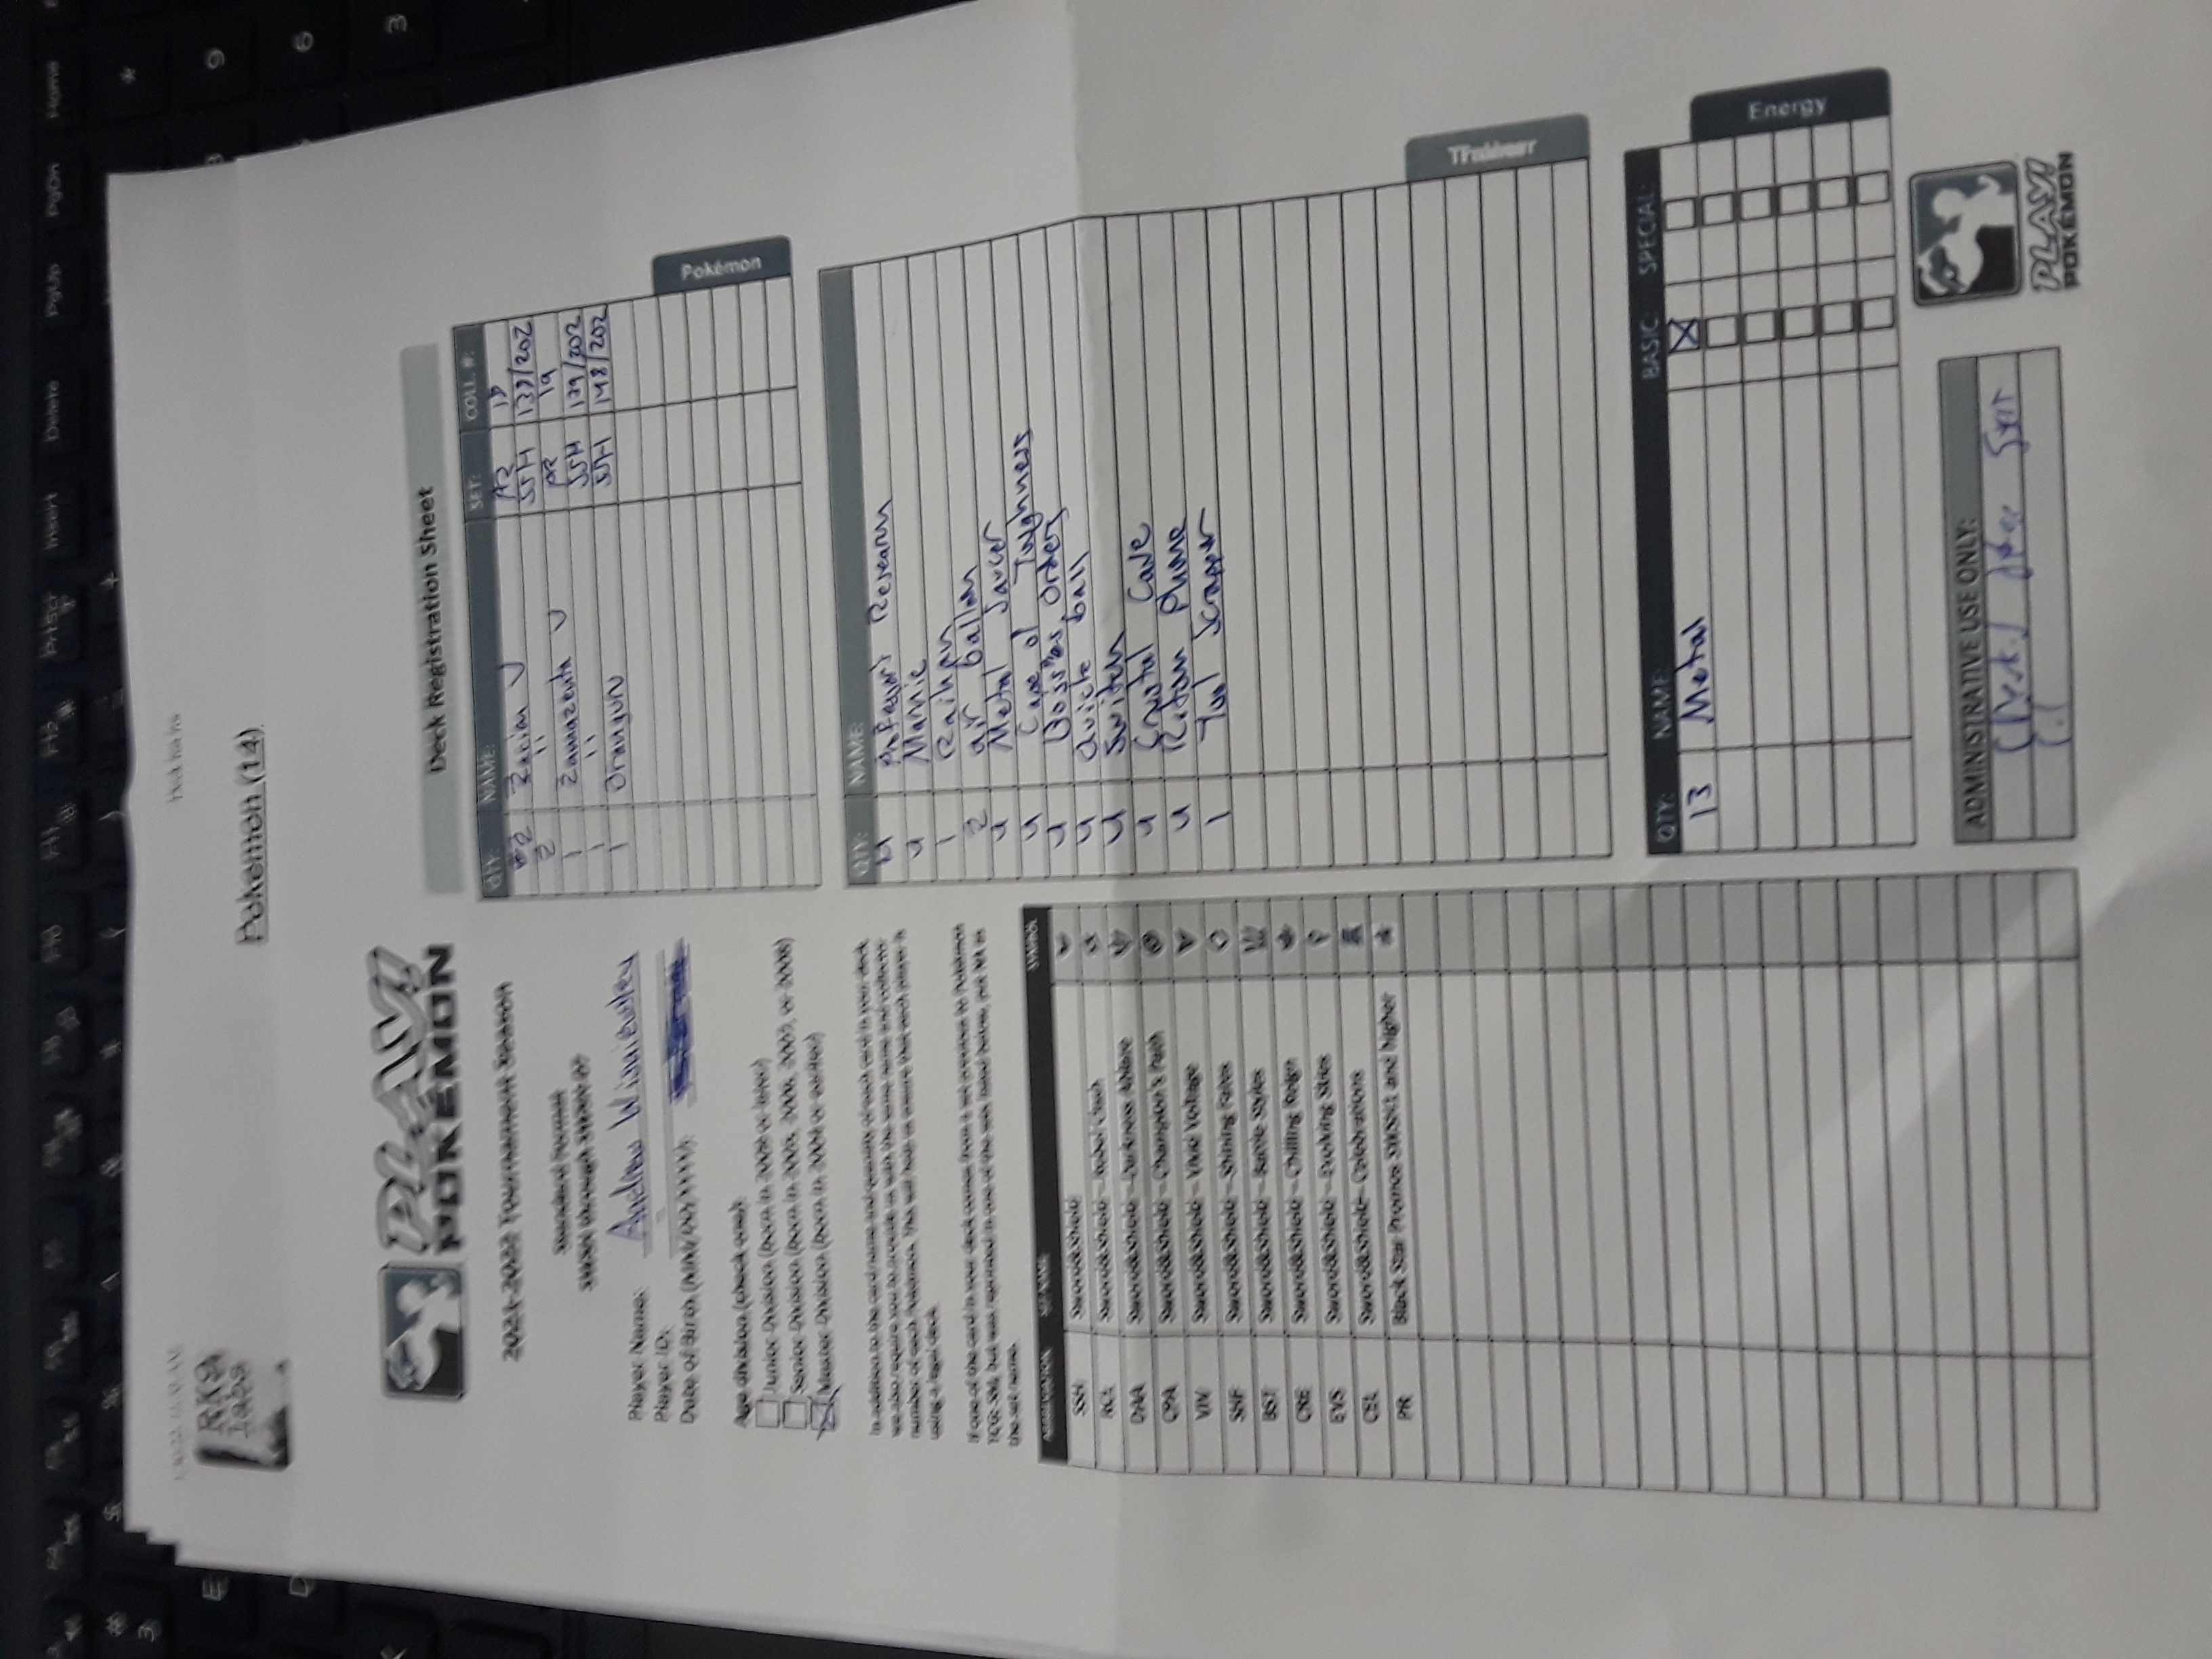 Deck list for
RK9
labs
Pokemon (14)
PLAY!
POKÉMON
2021-2022 Tournament Season
Standard Format
SWSH through SWSH-07
Player Name: Andrew
Player ID:
Date of Birth (MM/DD/YYYY):
Age division (check one):
Junior Division (born in 2009 or later)
Senior Division (born in 2005, 2006, 2007, or 2008)
Master Division (born in 2004 or earlier)
In addition to the card name and quantity of each card in your deck,
we also require you to provide us with the same name and collector
number of each Pokémon. This will help us ensure that each player is
using a legal deck.
If one of the card in your deck comes from a set previous to Pokémon
TCG: SM, but was reprinted in one of the sets listed below, put NA as
the set name.
ABBREVIATION SET NAME SYMBOL
SSH Sword&Shield
RCL Sword&Shield – Rebel Clash
DAA Sword&Shield – Darkness Ablaze
CPA Sword&Shield – Champion's Path
VIV Sword&Shield – Vivid Voltage
SHF Sword&Shield – Shining Fates
BST Sword&Shield – Battle Styles
CRE Sword&Shield – Chilling Reign
EVS Sword&Shield – Evolving Skies
CEL Sword&Shield – Celebrations
PR Black Star Promos SWSH1 and higher
Deck Registration Sheet
QTY: NAME: SET: COLL. #:
2 Zacian V PR 18
2 " SSH 139/202
1 Zamazenta V PR 19
1 " SSH 139/202
1 Oranguru SSH 148/202
Pokémon
QTY: NAME:
4 Professor's Research
4 Marnie
1 Raihan
2 air ballon
4 Metal Saucer
4 Cape of Toughness
4 Orders
4 Quick ball
4 Switch
4 Crystal Cave
4 Rotom Phone
1 Tool Scrapper
Trainer
QTY: NAME: BASIC: SPECIAL:
13 Metal
Energy
ADMINISTRATIVE USE ONLY:
PLAY!
POKÉMON